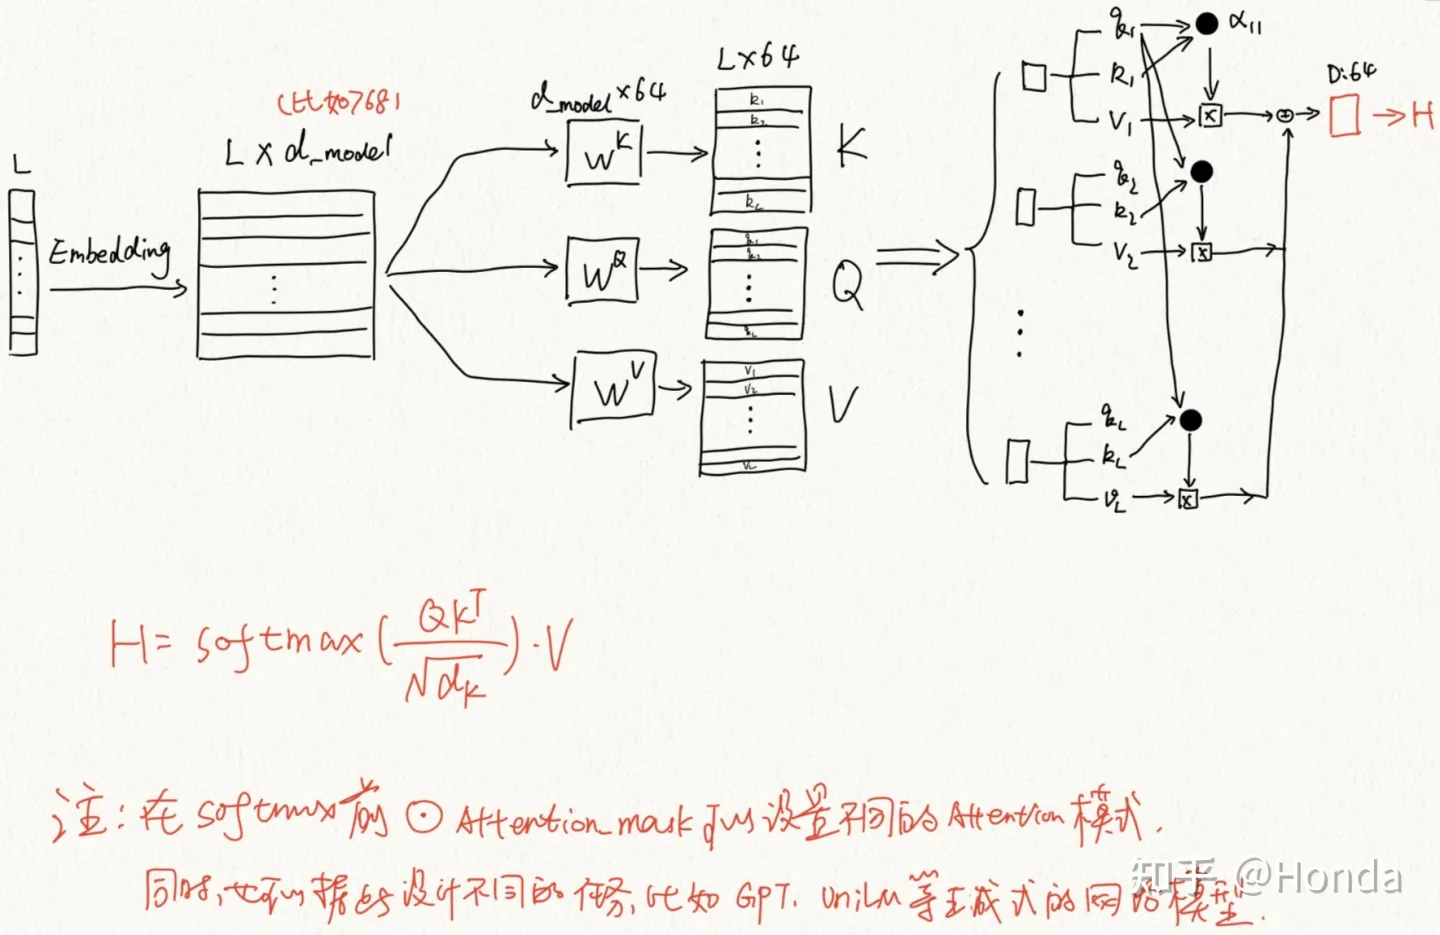 L
Embedding
(比如768)
L x d_model
d_model x 64
W^K
W^Q
W^V
L x 64
k₁
k₂
k_L
K
q₁
q₂
q_L
Q
V₁
V₂
V_L
V
q₁
k₁
V₁
α₁₁
x
q₂
k₂
V₂
x
q_L
k_L
V_L
x
+
D:64
H
H = softmax(QK^T/√d_k)·V
注:在softmax前 ⊙ Attention_mask可以设置不同的Attention模式.
同时,也可以据此设计不同的任务,比如GPT、UniLM等生成式的网络模型.
知乎 @Honda